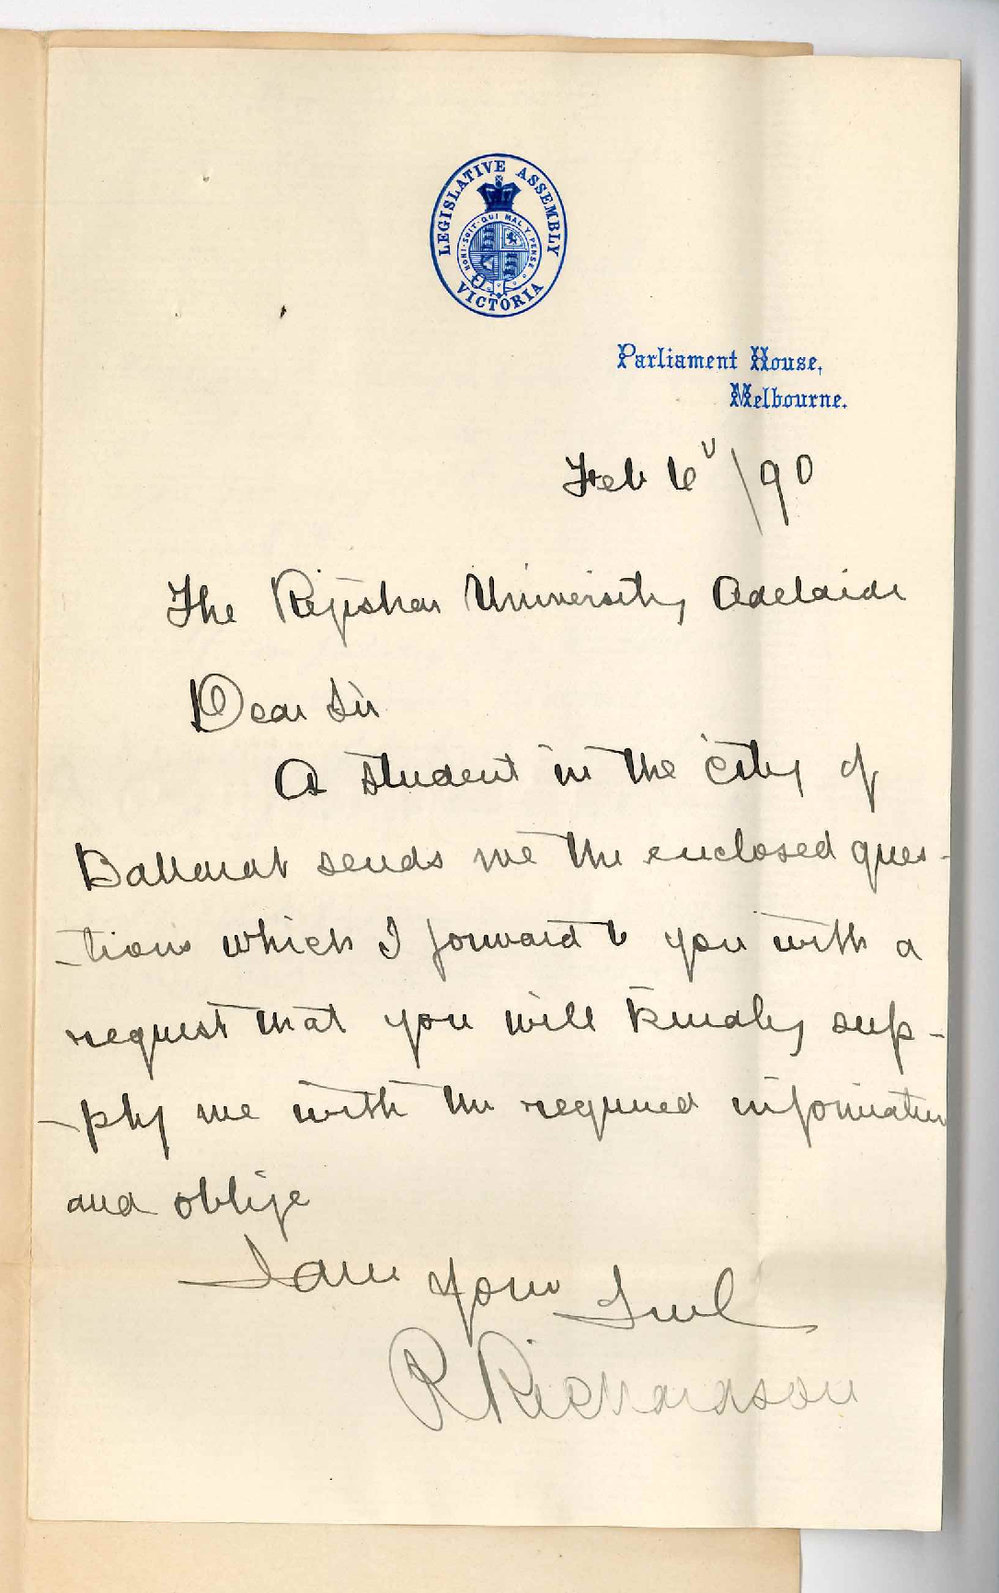 LEGISLATIVE ASSEMBLY
HONI · SOIT · QUI MAL Y · PENSE
VICTORIA
Parliament House,
Melbourne.
Feb 6 /90
The Registrar University, Adelaide
Dear Sir
A student in the city of
Ballarat sends me the enclosed ques-
-tions which I forward to you with a
request that you will kindly sup-
-ply me with the required information
and oblige
I am Yours Truly
R Richardson